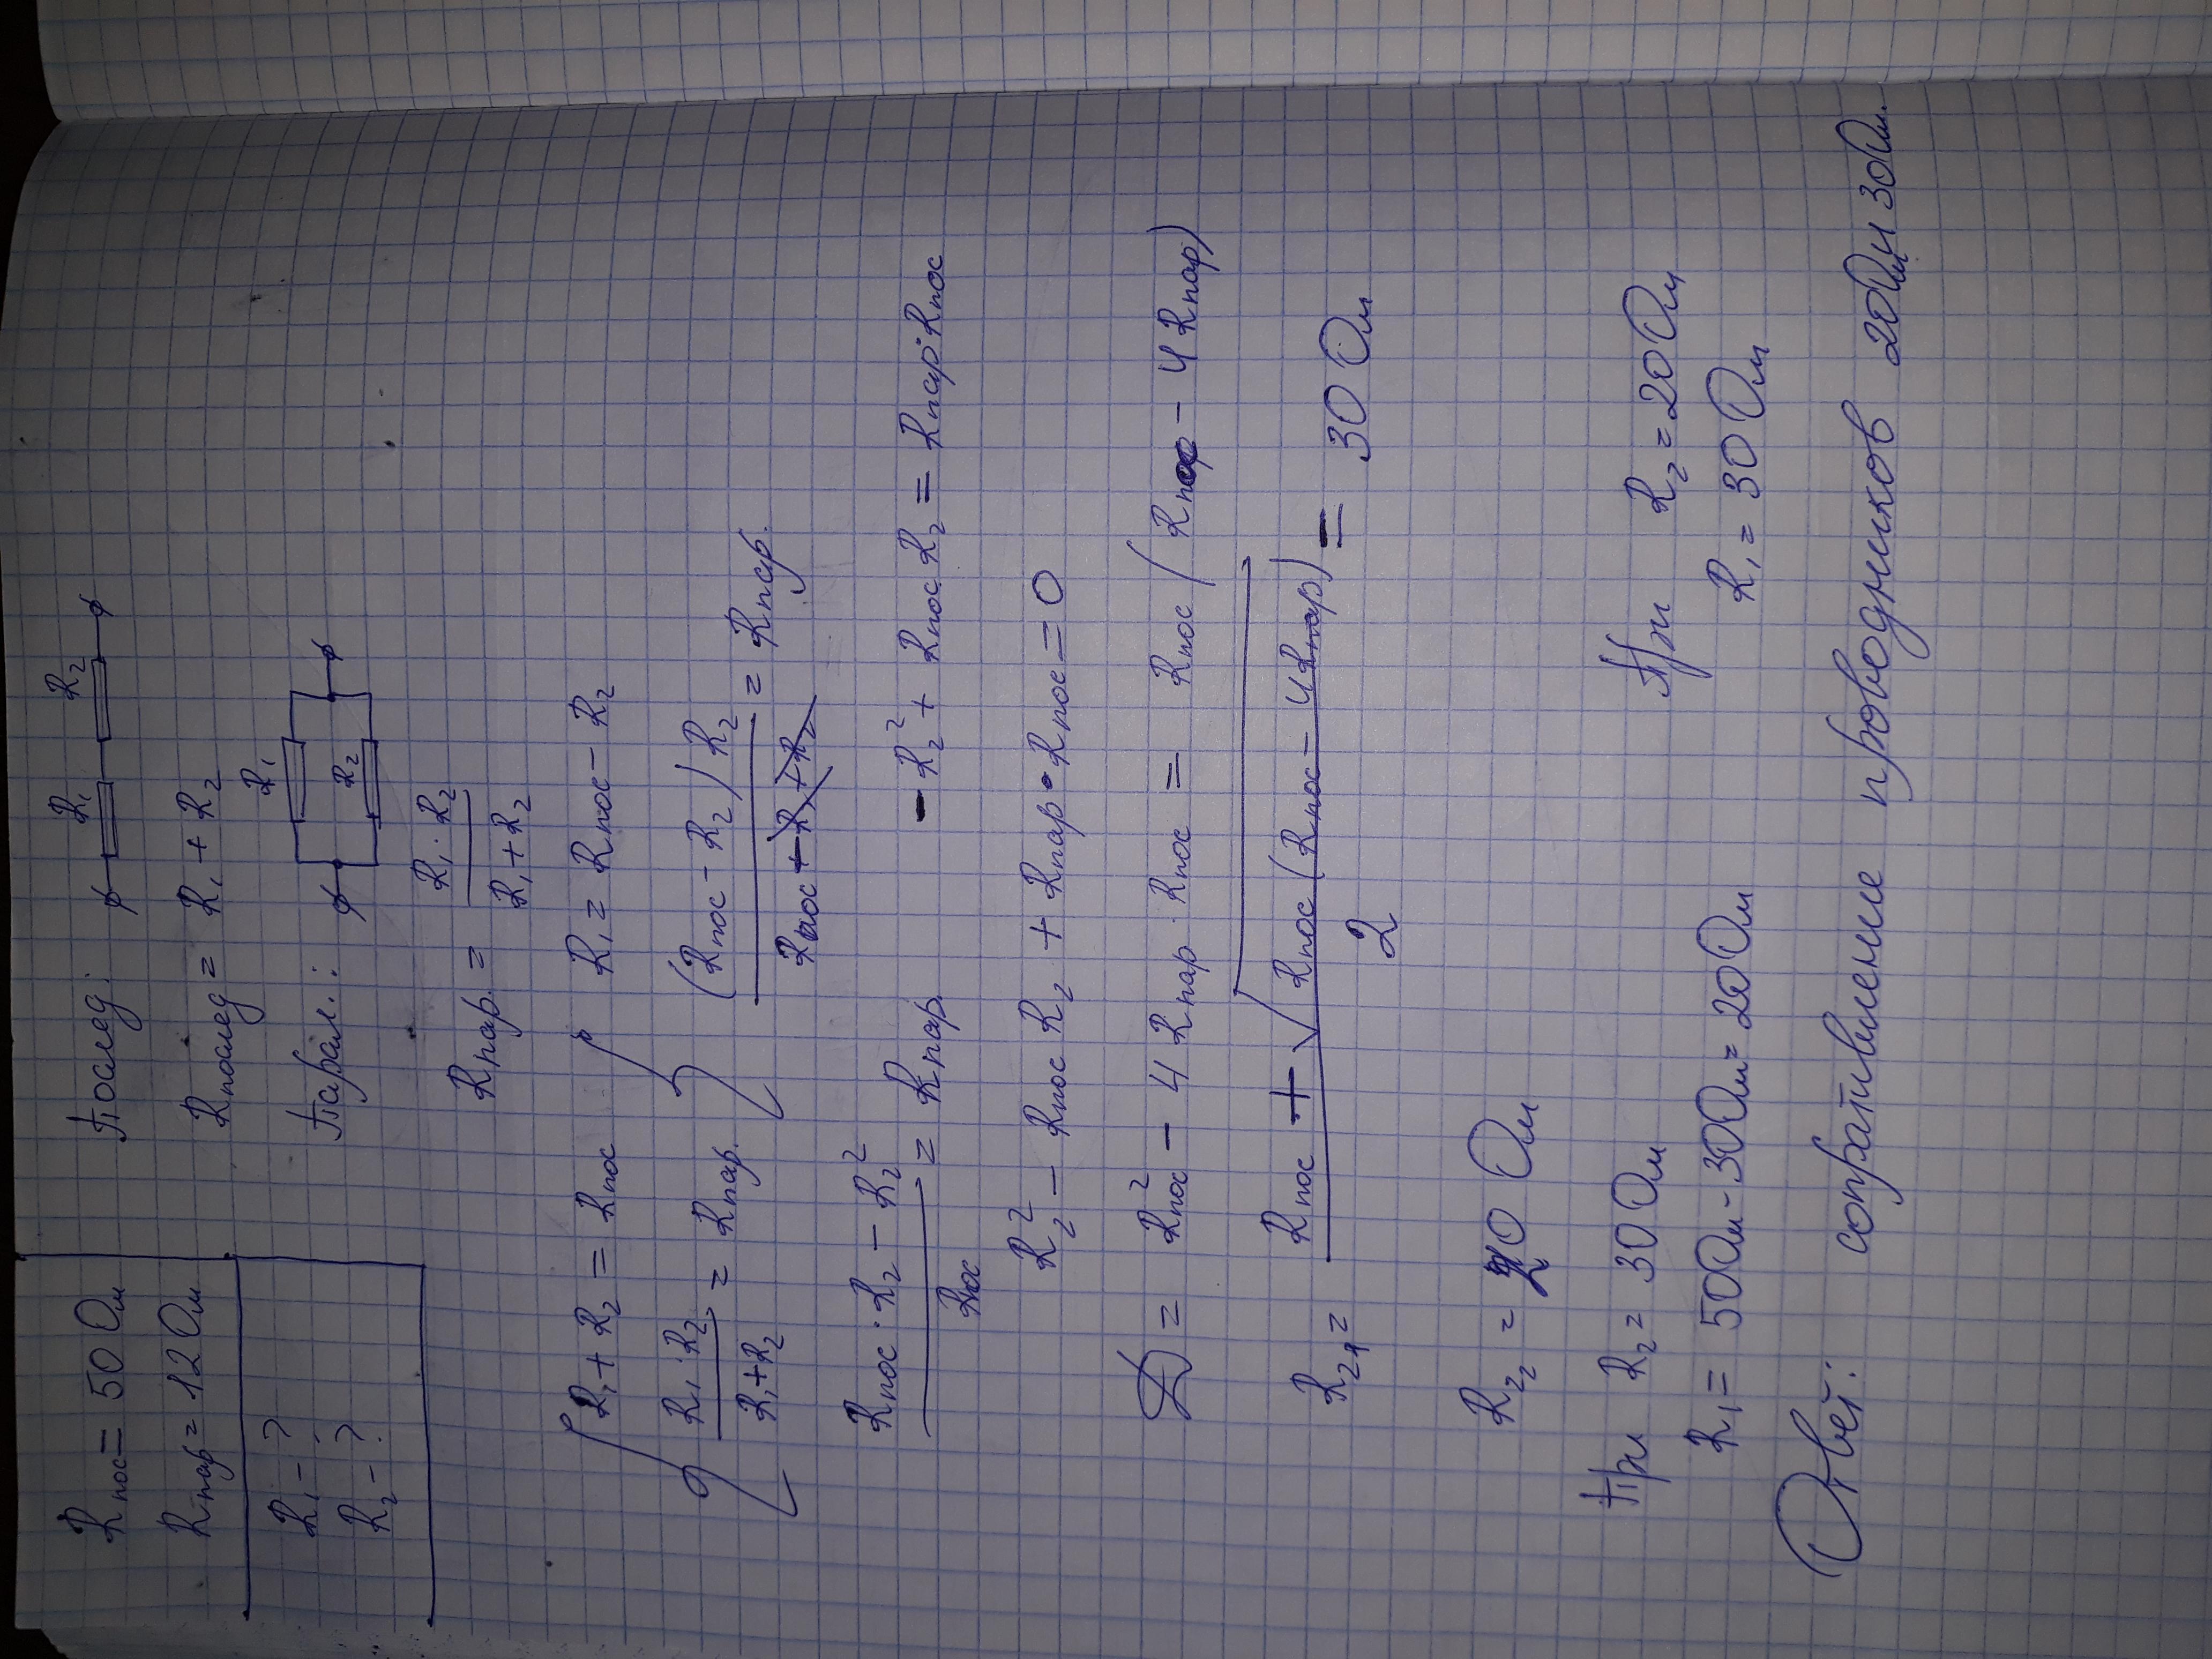 Rпос = 50 Ом
Rпар = 12 Ом
R₁ - ?
R₂ - ?
Послед:
R₁ R₂
Rпослед = R₁ + R₂
Парал.:
R₁
R₂
Rпар. = R₁ · R₂ / R₁ + R₂
{ R₁ + R₂ = Rпос { R₁ = Rпос - R₂
R₁ · R₂ / R₁ + R₂ = Rпар. (Rпос - R₂) R₂ / Rпос = Rпар.
Rпос · R₂ - R₂² / Rпос = Rпар. - R₂² + Rпос R₂ = Rпар · Rпос
R₂² - Rпос R₂ + Rпар · Rпос = 0
D = Rпос² - 4 Rпар · Rпос = Rпос (Rпос - 4 Rпар)
R₂₁ = Rпос + √Rпос (Rпос - 4Rпар) / 2 = 30 Ом
R₂₂ = 20 Ом
При R₂ = 30 Ом При R₂ = 20 Ом
R₁ = 50 Ом - 30 Ом = 20 Ом R₁ = 30 Ом
Ответ: сопративление проводников 20 Ом и 30 Ом.